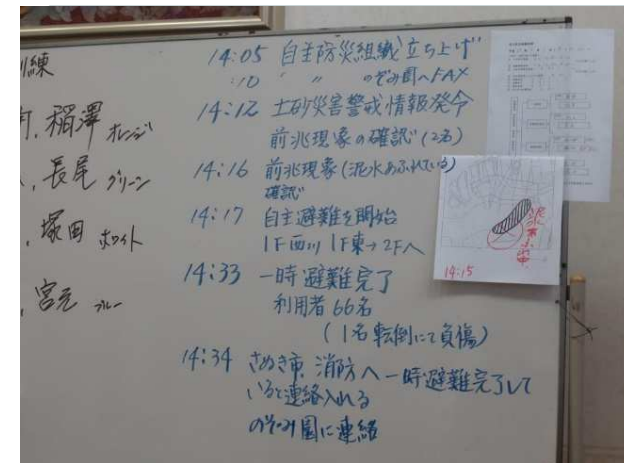 訓練
稲澤 オレンジ
長尾 グリーン
塚田 ホワイト
宮元 ブルー
14:05 自主防災組織立ち上げ
:10 〃 〃 のぞみ園へFAX
14:12 土砂災害警戒情報発令
前兆現象の確認(2名)
14:16 前兆現象(泥水あふれている)
確認
14:17 自主避難を開始
1F西 1F東→2Fへ
14:33 一時避難完了
利用者66名
(1名転倒にて負傷)
14:34 さぬき市、消防へ一時避難完了して
いると連絡入れる
のぞみ園に連絡
14:15